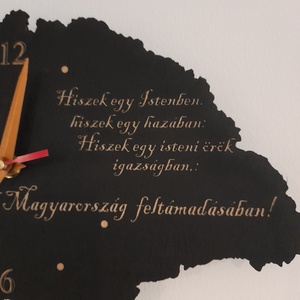 12
Hiszek egy Istenben,
hiszek egy hazában:
Hiszek egy isteni örök
igazságban,:
Magyarország feltámadásában!
6